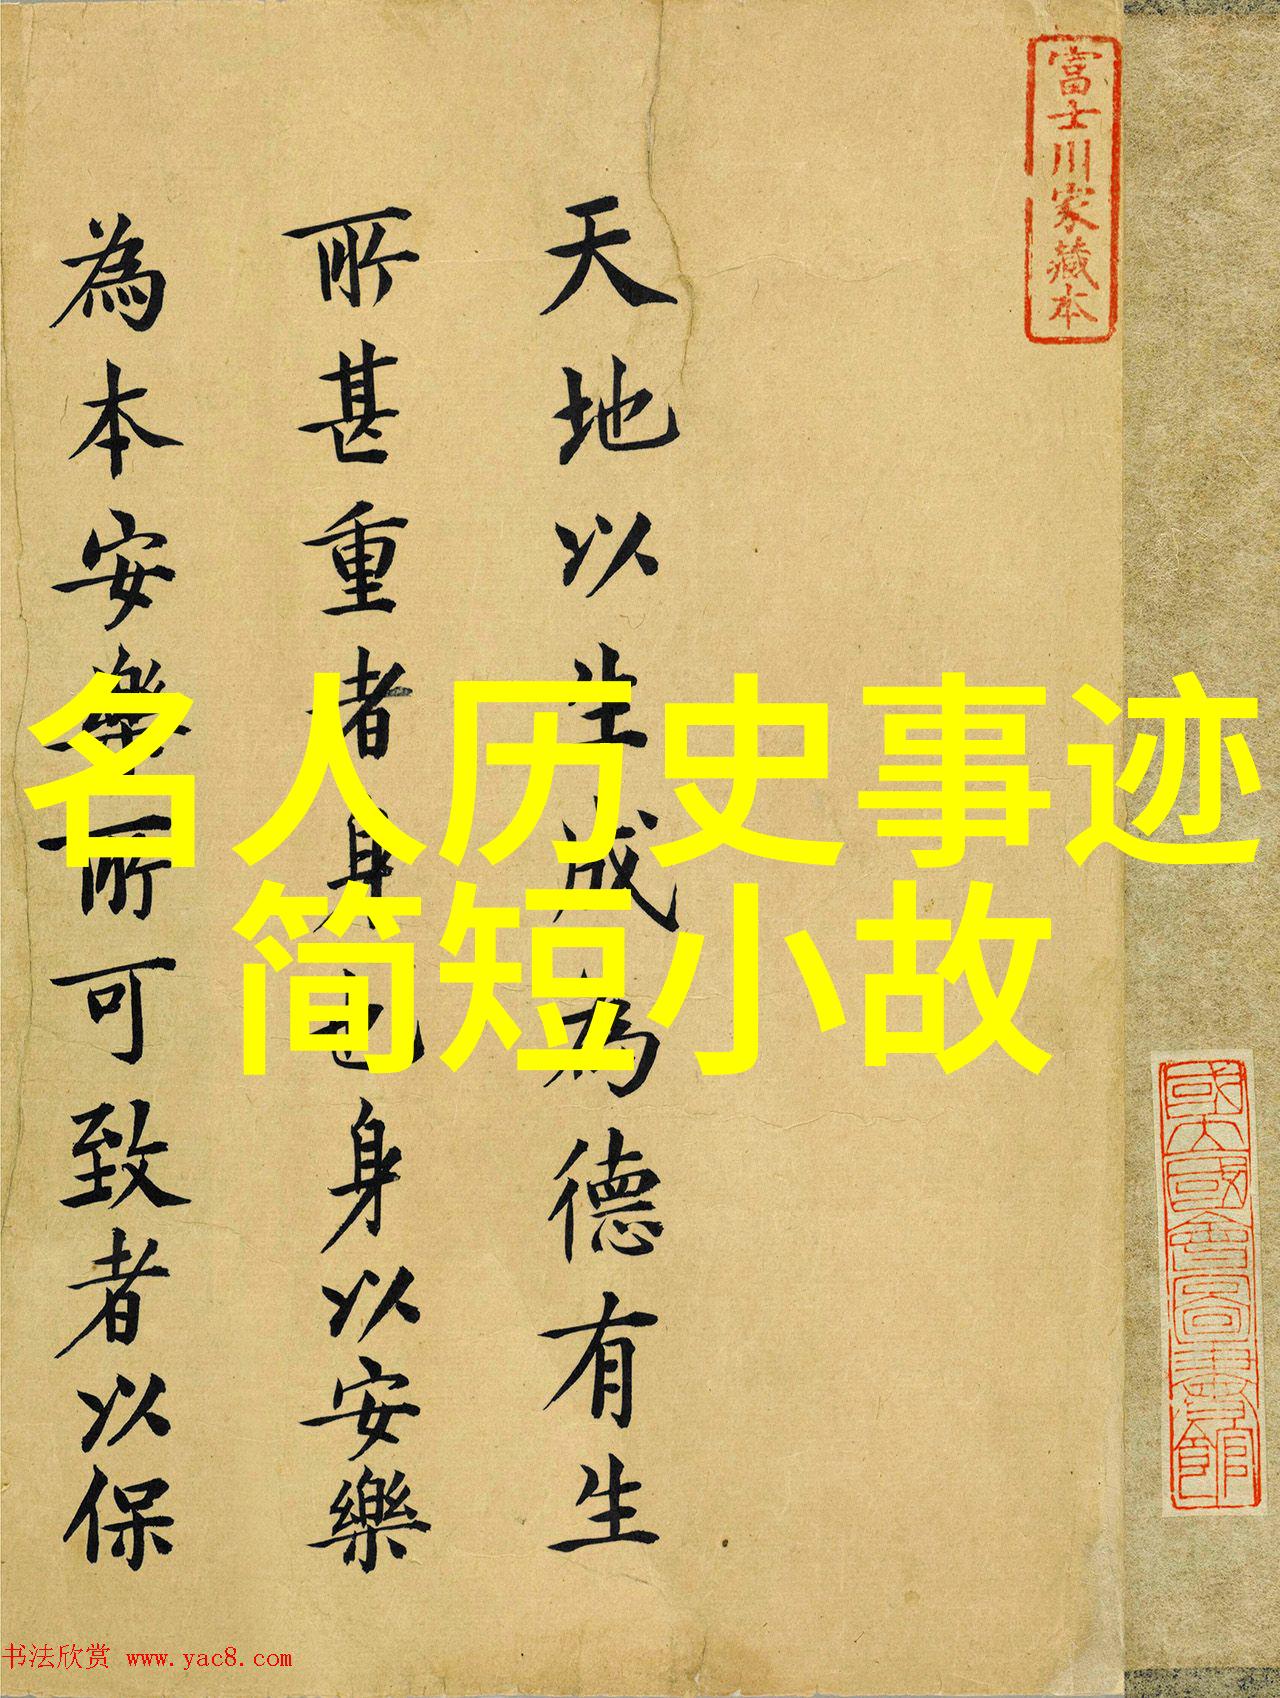 富士川家藏本
天地以生成為德有生
所甚重者身也身以安樂
為本安樂所可致者以保
名人历史事迹
简短小故
國立國會圖書館
书法欣赏 www.yac8.com